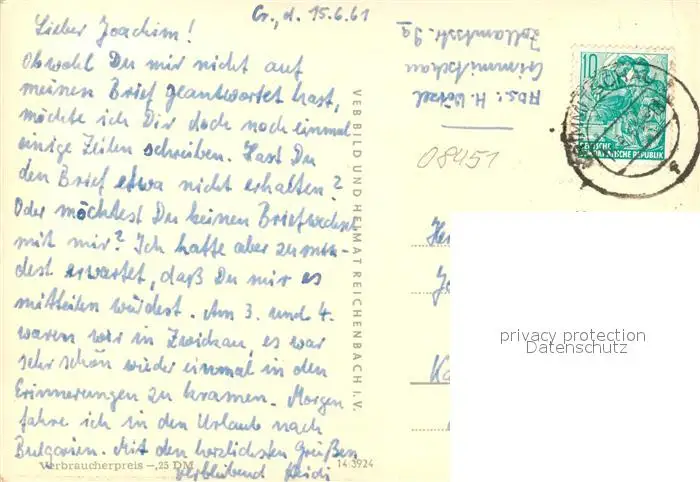 Cr., d. 15.6.61
Lieber Joachim!
Obwohl Du mir nicht auf
meinen Brief geantwortet hast,
möchte ich Dir doch noch einmal
einige Zeilen schreiben. Hast Du
den Brief etwa nicht erhalten?
Oder möchtest Du keinen Briefwechsel
mit mir? Ich hatte aber zumin-
dest erwartet, daß Du mir es
mitteilen würdest. Am 3. und 4.
waren wir in Zwickau, es war
sehr schön wieder einmal in den
Erinnerungen zu kramen. Morgen
fahre ich in den Urlaub nach
Bulgarien. Mit den herzlichsten Grüßen
verbleibend Heidi
Verbraucherpreis –,25 DM
14 3924
VEB BILD UND HEIMAT REICHENBACH I. V.
Abs.: H. Wetzel
Crimmitschau
Zollamtsstr. 9a
08451
10
DEUTSCHE
DEMOKRATISCHE REPUBLIK
privacy protection
Datenschutz